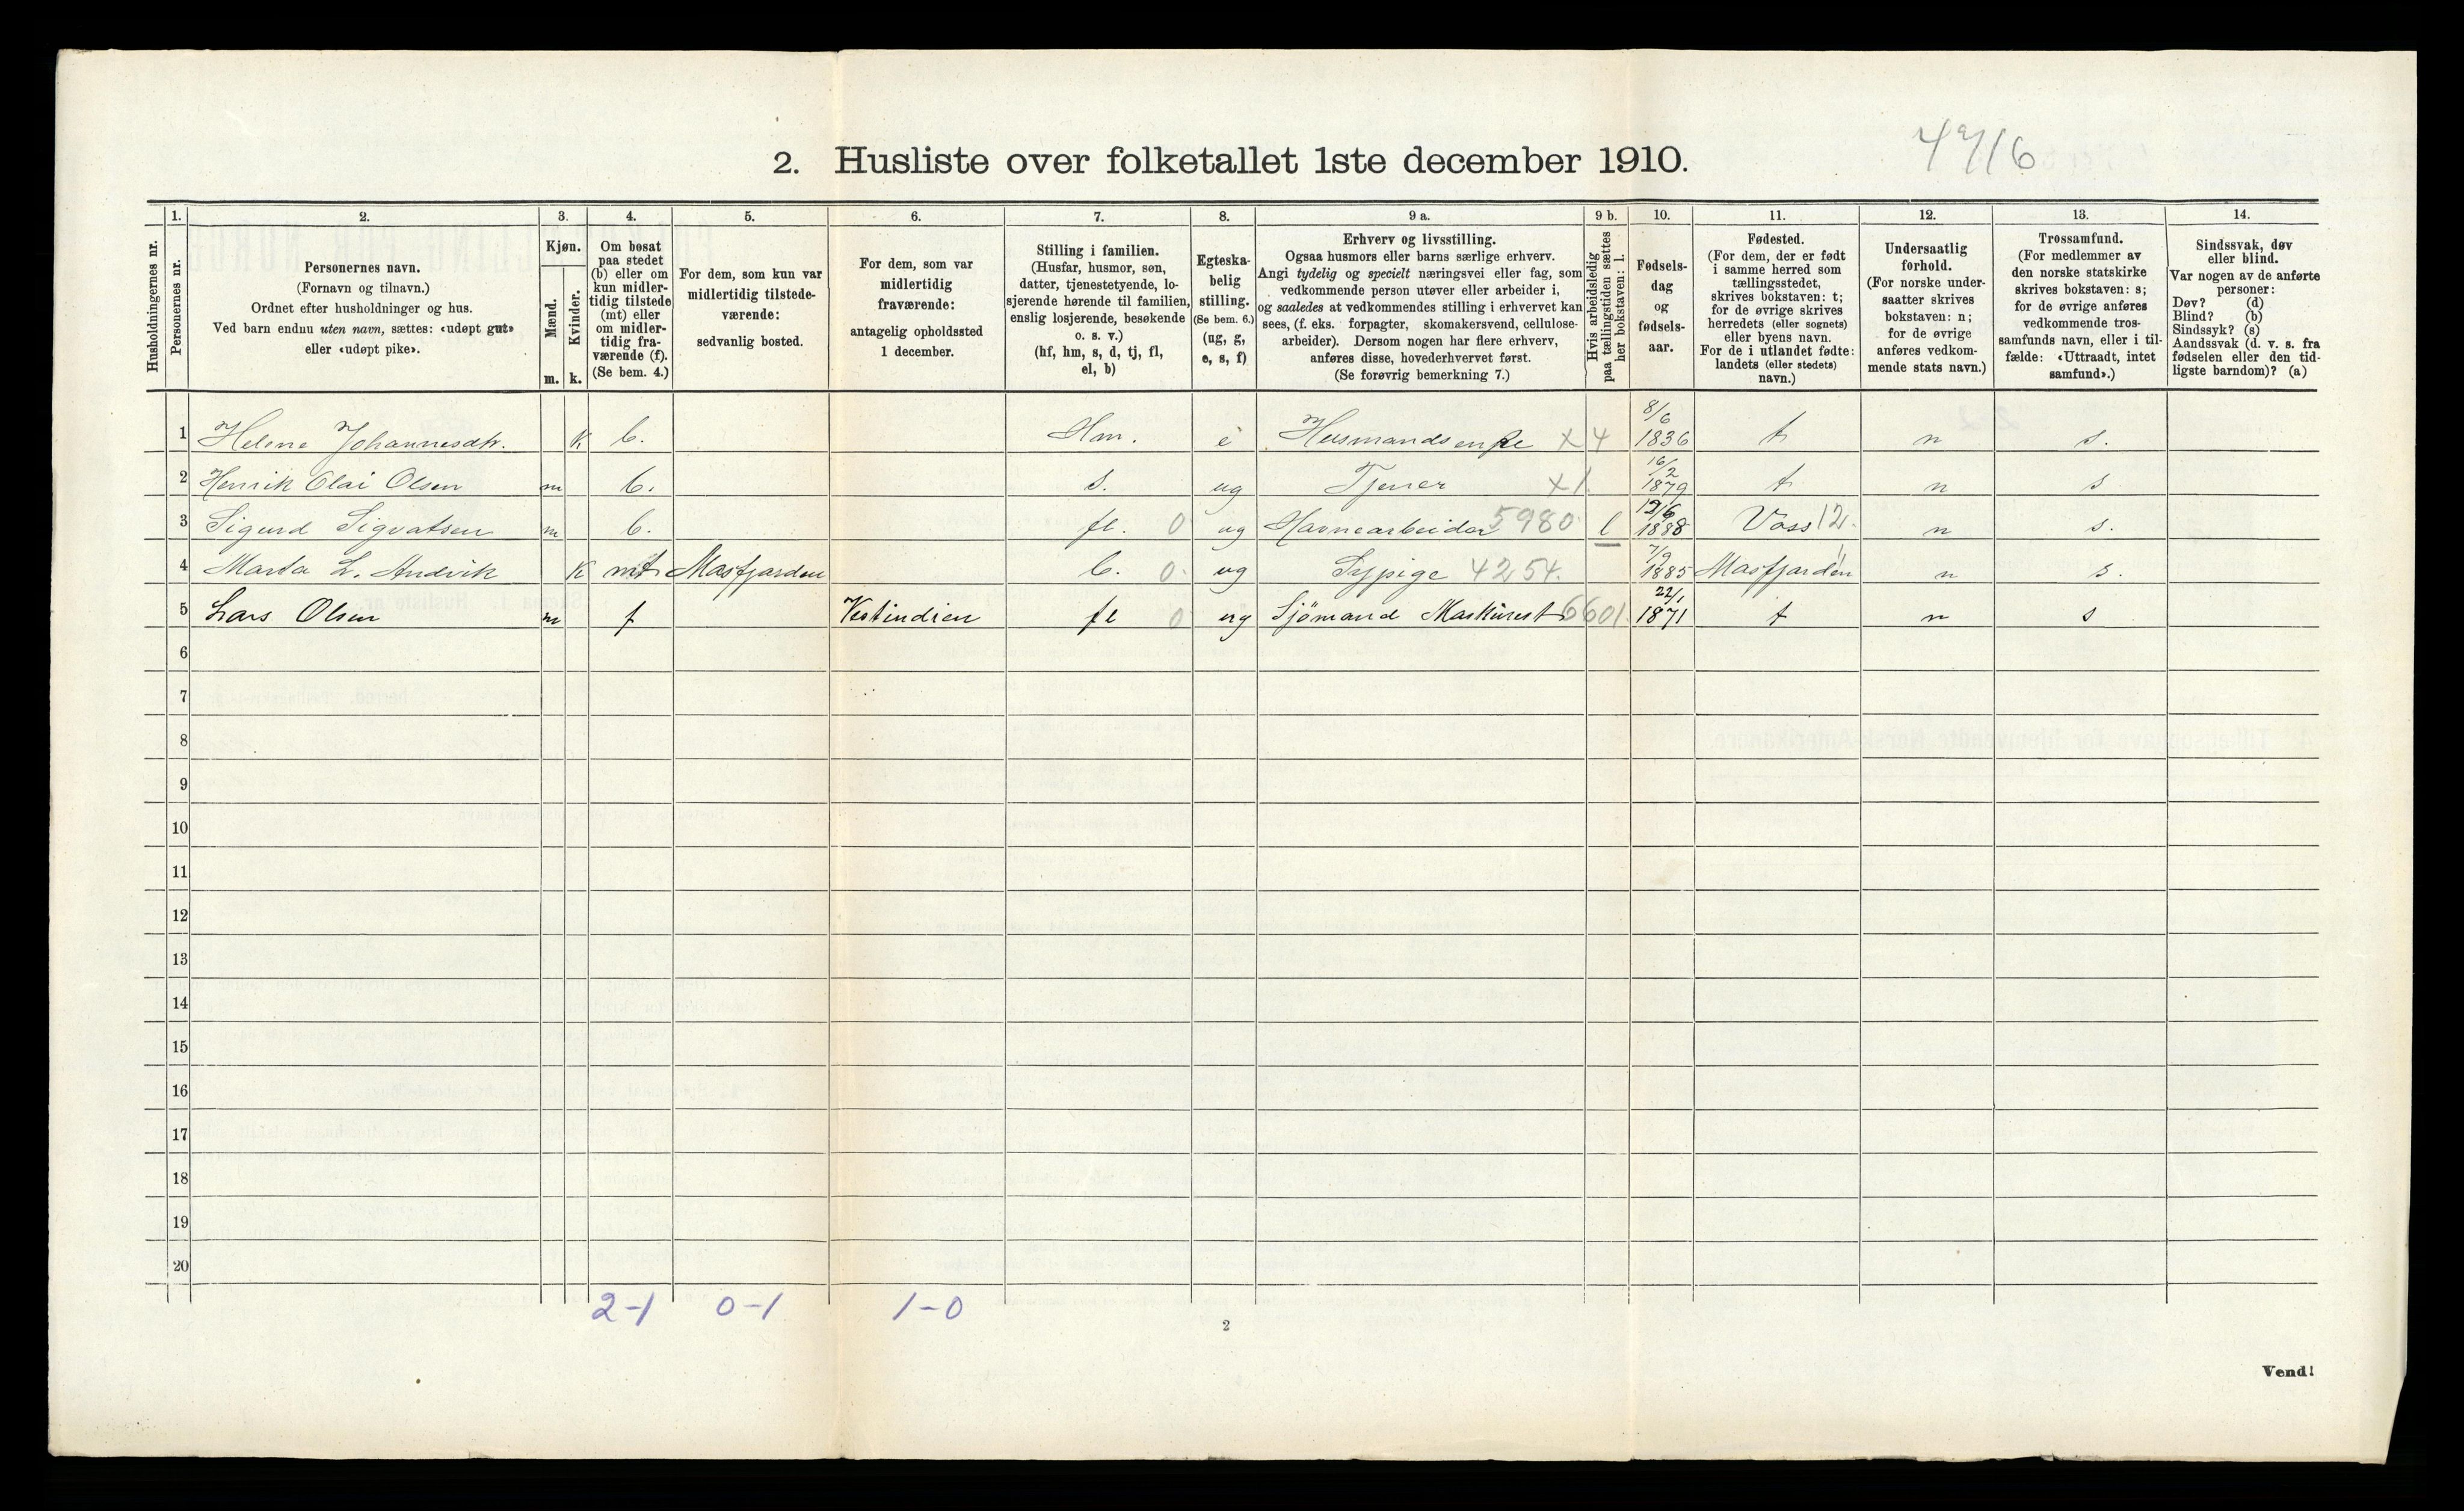 4716
2. Husliste over folketallet 1ste december 1910.
Husholdningernes nr.
1. Personernes nr.
2. Personernes navn.
(Fornavn og tilnavn.)
Ordnet efter husholdninger og hus.
Ved barn endnu uten navn, sættes: «udøpt gut»
eller «udøpt pike».
3. Kjøn.
Mænd. m.
Kvinder. k.
4. Om bosat
paa stedet
(b) eller om
kun midler-
tidig tilstede
(mt) eller
om midler-
tidig fra-
værende (f).
(Se bem. 4.)
5. For dem, som kun var
midlertidig tilstede-
værende:
sedvanlig bosted.
6. For dem, som var
midlertidig
fraværende:
antagelig opholdssted
1 december.
7. Stilling i familien.
(Husfar, husmor, søn,
datter, tjenestetyende, lo-
sjerende hørende til familien,
enslig losjerende, besøkende
o. s. v.)
(hf, hm, s, d, tj, fl,
el, b)
8. Egteska-
belig
stilling.
(Se bem. 6.)
(ug, g,
e, s, f)
9 a. Erhverv og livsstilling.
Ogsaa husmors eller barns særlige erhverv.
Angi tydelig og specielt næringsvei eller fag, som
vedkommende person utøver eller arbeider i,
og saaledes at vedkommendes stilling i erhvervet kan
sees, (f. eks. forpagter, skomakersvend, cellulose-
arbeider). Dersom nogen har flere erhverv,
anføres disse, hovederhvervet først.
(Se forøvrig bemerkning 7.)
9 b. Hvis arbeidsledig
paa tællingstiden sættes
her bokstaven: l.
10. Fødsels-
dag
og
fødsels-
aar.
11. Fødested.
(For dem, der er født
i samme herred som
tællingsstedet,
skrives bokstaven: t;
for de øvrige skrives
herredets (eller sognets)
eller byens navn.
For de i utlandet fødte:
landets (eller stedets)
navn.)
12. Undersaatlig
forhold.
(For norske under-
saatter skrives
bokstaven: n;
for de øvrige
anføres vedkom-
mende stats navn.)
13. Trossamfund.
(For medlemmer av
den norske statskirke
skrives bokstaven: s;
for de øvrige anføres
vedkommende tros-
samfunds navn, eller i til-
fælde: «Uttraadt, intet
samfund».)
14. Sindssvak, døv
eller blind.
Var nogen av de anførte
personer:
Døv? (d)
Blind? (b)
Sindssyk? (s)
Aandssvak (d. v. s. fra
fødselen eller den tid-
ligste barndom)? (a)
1 Helene Johannesdtr. K b. Hm. e Husmandsenke x 4 8/6 1836 t n s.
2 Henrik Olai Olsen m b. s. ug Tjener x 1 16/2 1879 t n s
3 Sigurd Sigvatsen m b. fl. 0 ug Havnearbeider 5980 l 1888 Voss 12. n s.
4 Marta L. Andvik K mt Masfjorden b. 0. ug Sypige 4254. 7/9 1885 Masfjorden n s.
5 Lars Olsen m f Vestindien fl 0 ug Sjömand Maskinist 6601. 22/1 1871 t n s
6
7
8
9
10
11
12
13
14
15
16
17
18
19
20
2-1 0-1 1-0
2
Vend!